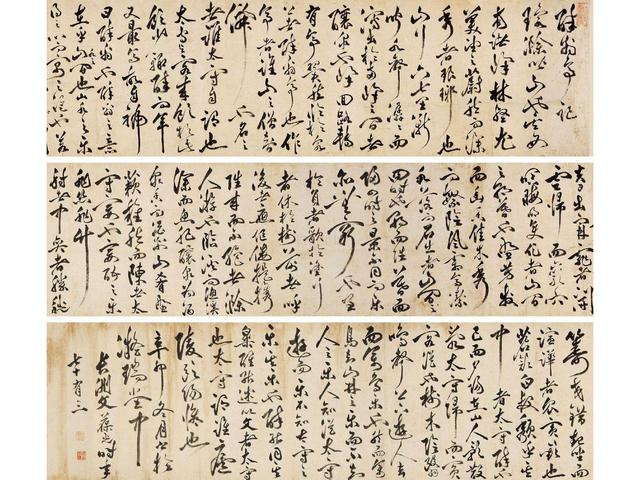 醉翁亭記
環滁皆山也其西南
諸峰林壑尤
美望之蔚然而深
秀者琅琊也
山行六七里漸
聞水聲潺潺而
瀉出於兩峰之間者
釀泉也峰回路轉
有亭翼然臨於泉
上者醉翁亭也作
亭者誰山之僧智
僊也名之
者誰太守自謂也
太守與客來飲於此
飲少輒醉而年
又最高故自號
曰醉翁也醉翁之意
在乎山水之間也山水之樂
得之心而寓之酒也若
夫日出而林霏開
雲歸而巖穴
暝晦明變化者山間
之朝暮也野芳發
而幽香佳木秀
而繁陰風霜高潔
水落而石出者山間之
四時也朝而往暮而
歸四時之景不同而樂
亦無窮也至
於負者歌於塗行
者休於樹前者呼
後者應傴僂提攜
往來而不絕者滁
人遊也臨溪而漁溪
深而魚肥釀泉為酒
泉香而酒洌山肴野
蔌雜然而前陳者太
守宴也宴酣之樂
非絲非竹
射者中弈者勝觥
籌交錯起坐而
諠譁者衆賓歡也
蒼顏白髮頹然乎
中者太守醉也
已而夕陽在山人影散
亂太守歸而賓
客從也樹木陰翳
鳴聲上下遊人去
而禽鳥樂也然而禽
鳥知山林之樂而不知
人之樂人知從太守
遊而樂不知太守之
樂其樂也醉能同其
樂醒能述以文者太守
也太守謂誰廬
陵歐陽修也
辛卯冬月書於
凝瑞堂中
長洲文葆光時年
七十有二